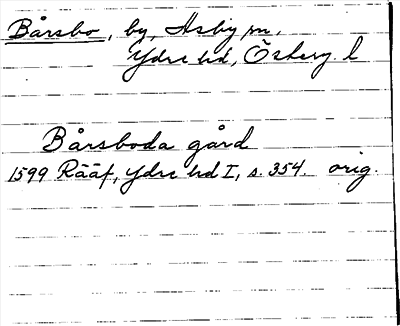 Bårsbo, by, Asby sn,
Ydre hd, Österg. l
Bårsboda gård
1599 Rääf, Ydre hd I, s. 354. orig.